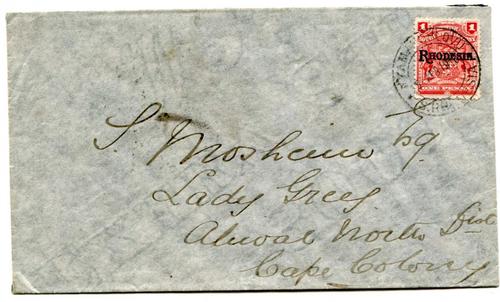 1 1
RHODESIA.
ONE PENNY
S Mosheim Esq.
Lady Grey
Aliwal North Dist
Cape Colony